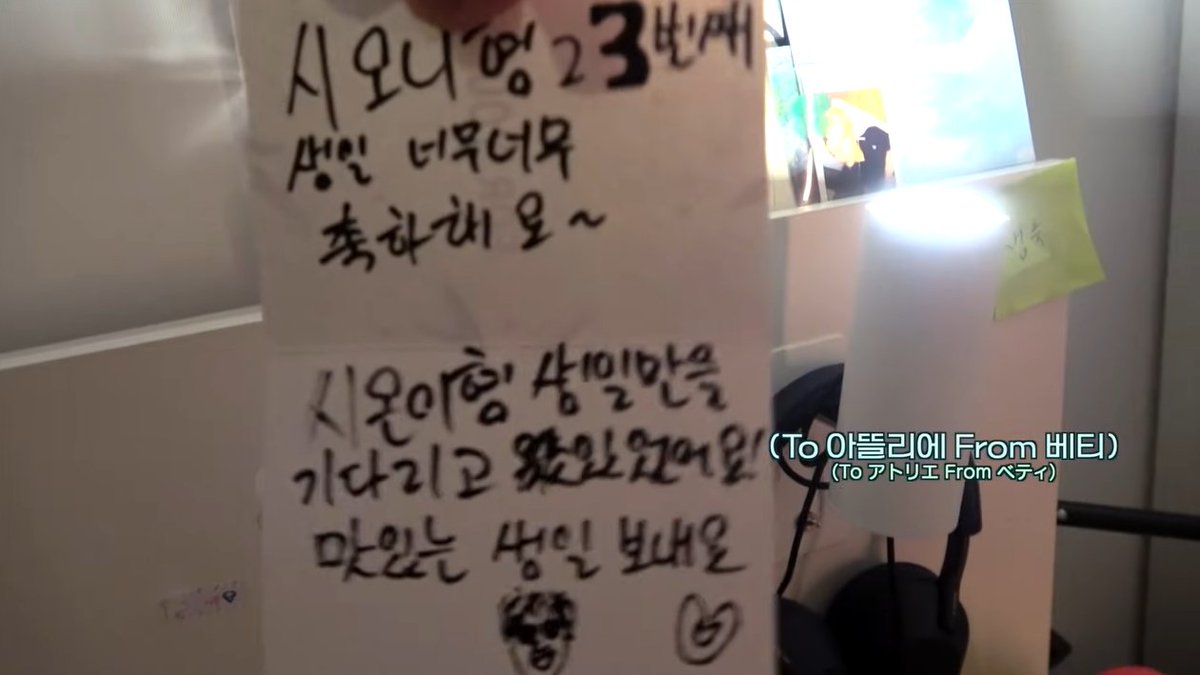 시오니 형 23번째
생일 너무너무
축하해요~
시온이형 생일만을
기다리고 있었어요!
맛있는 생일 보내요
(To 아뜰리에 From 베티)
(To アトリエ From ベティ)